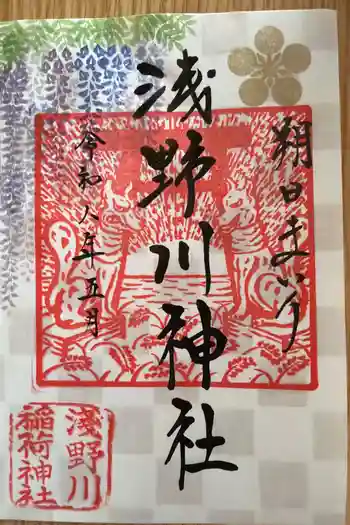 朔日まいり
淺野川神社
令和八年五月
淺野川
稲荷神社